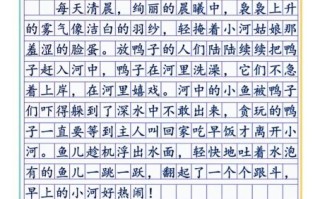 每天清晨，绚丽的晨曦中，袅袅上升
的雾气像洁白的羽纱，轻掩着小河姑娘那
羞涩的脸蛋。放鸭子的人们陆陆续续把鸭
子赶入河中，鸭子在河里洗澡，它们不急
着上岸，在河里嬉戏。河中的小鱼被鸭子
们吓得躲到了深水中不敢出来，贪玩的鸭
子一直要等到主人叫回家吃早饭才离开小
河。鱼儿趁机浮出水面，轻快地吐着水泡
有的鱼儿一跳一跃，翻起了一个个跟斗，
早上的小河好热闹！